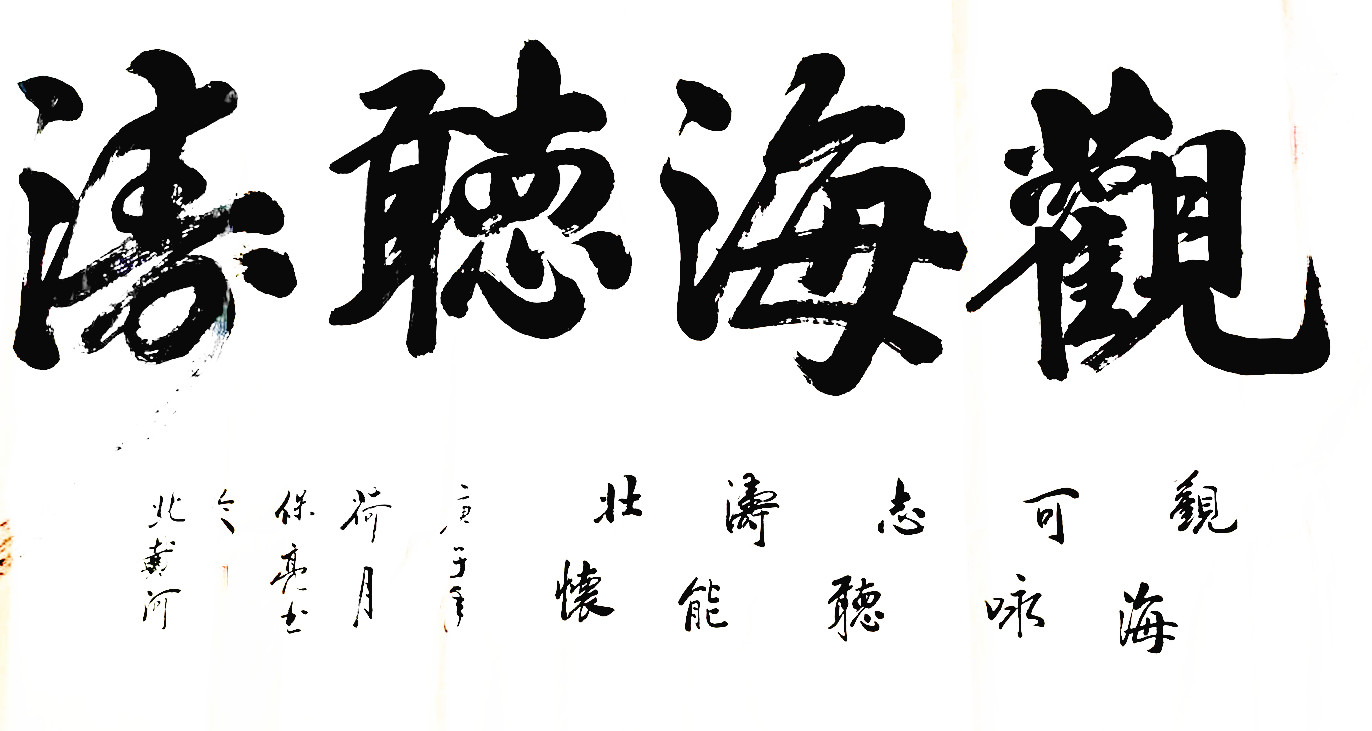 觀海聽濤
觀海
可咏
志聽
濤能
壯懷
庚子年
荷月
保亮书
於
北戴河